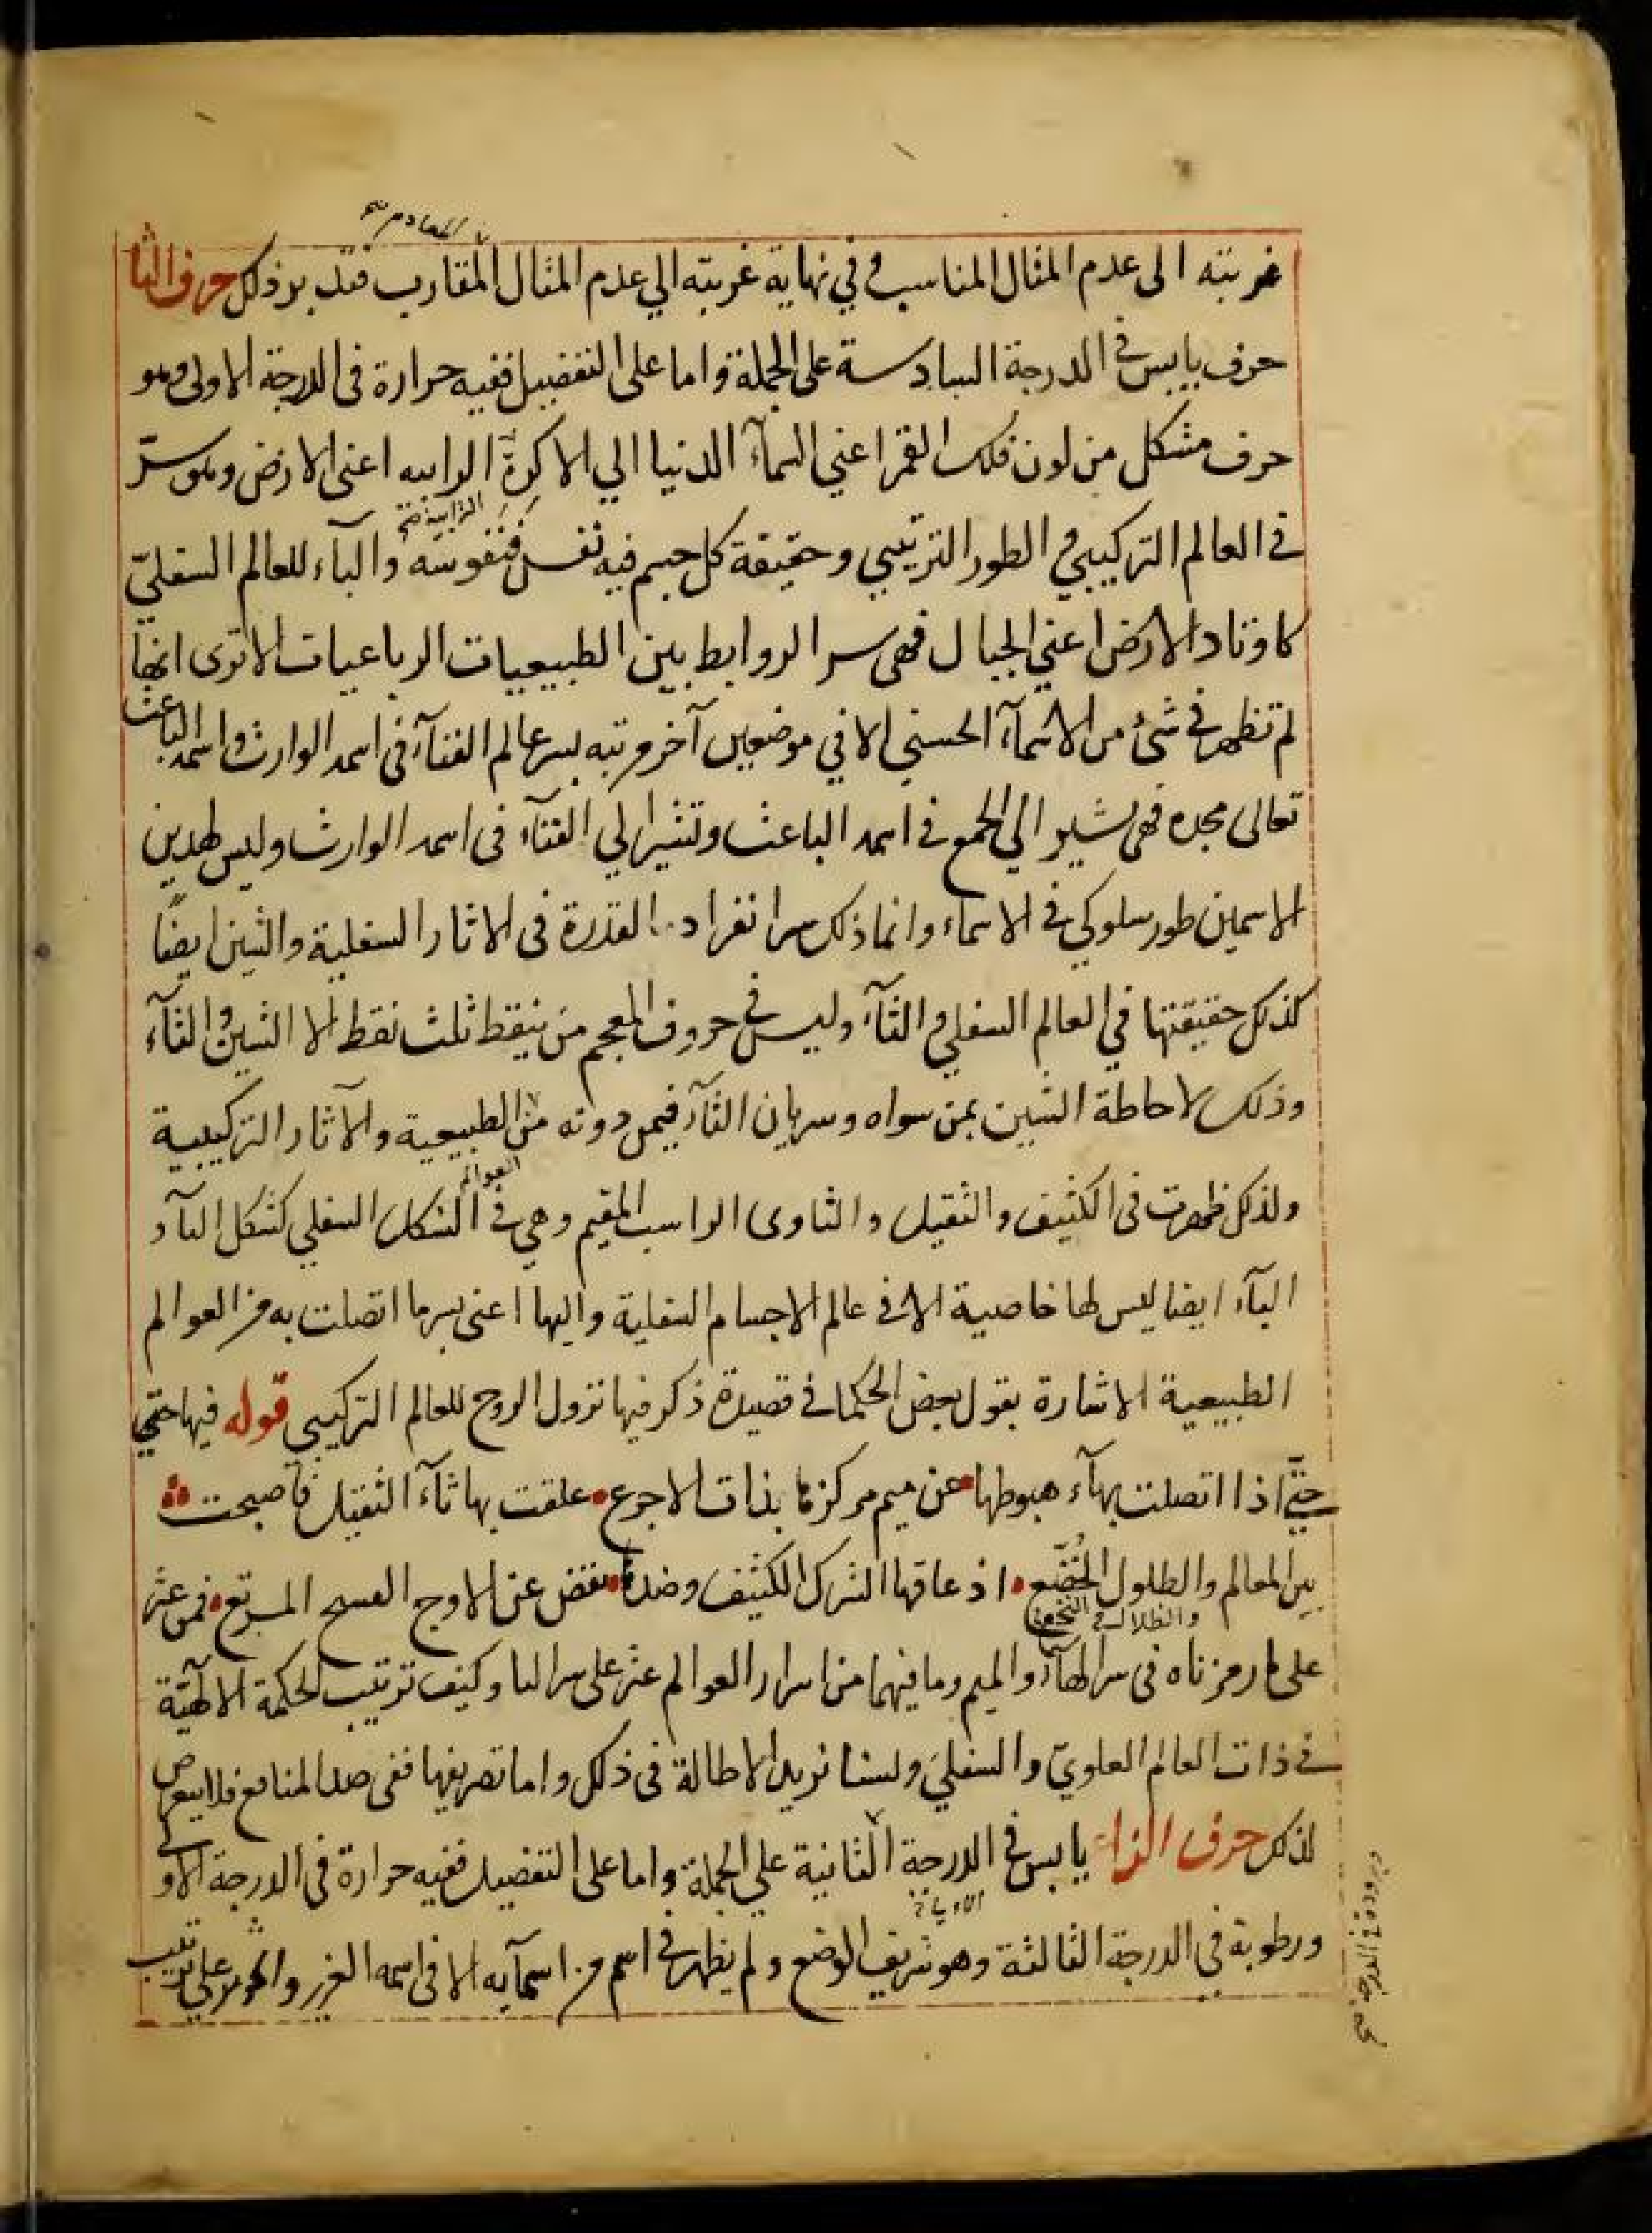 المعادم نسخ
غربته الى عدم المثال المناسب وفي نهاية غربته الي عدم المثال المقارب فتدبر ذلك حرف الثا
حرف يابس في الدرجة السادسة على الجملة واما على التفصيل ففيه حرارة في الدرجة الاولى وهو
حرف مشكل من لون فلك القمر اعني السمآء الدنيا الي الاكرة الراسه اعني الارض وهو سرّ
الترابية صح
في العالم التركيبي والطور الترتيبي وحقيقة كل جسم فيه نفس والثآء للعالم السفليّ
كاوتاد الارض اعني الجبال فهي سر الروابط بين الطبيعيات الرباعيات الا ترى انها
لم تظهر في شئ من الاسمآء الحسني الا في موضعين آخر مرتبه بسر عالم الفنآء في اسمه الوارث واسمه الباعث
تعالى مجده فهي تشير الي الجمع في اسمه الباعث وتشير الي الفنآء في اسمه الوارث وليس لهذين
الاسمين طور سلوكي في الاسماء وانما ذلك سر انفراد القدرة في الاثار السفلية والشين ايضًا
كذلك حقيقتها في العالم السفلي والثآء وليس في حروف المعجم من ينقط ثلث نقط الا الشين والثآء
وذلك لاحاطة الشين بمن سواه وسريان الثآء فيمن دونه من الطبيعية والآثار التركيبية
العوالم
ولذلك ظهرت في الكثيف والثقيل والثاوى الراسب المقيم وهي في الشكل السفلي كشكل البآء و
البآء ايضا ليس لها خاصية الا في عالم الاجسام السفلية واليها اعني بسر ما اتصلت به من العوالم
الطبيعية الاشارة بقول بعض الحكما في قصيدة ذكر فيها نزول الروح للعالم التركيبي قوله فيها حتي
حتّي اذا اتصلت بهآء هبوطها عن ميم مركزها بذات الاجرع علقت بها ثآء الثقيل فاصبحت
بين المعالم والطلول الخُضّع اذ عاقها الشرك الكثيف وصدها نقص عن الاوج الفسيح المربع فمن عثر
على ما رمزناه في سر الهآء والميم وما فيهما من اسرار العوالم عثر على سر الثا وكيف ترتيب الحكمة الالهيّة
في ذات العالم العلويّ والسفليّ ولسنا نريد الاطالة في ذلك واما تصريفها ففي صد المنافع فلا تعرض
لذلك حرف الزاء يابس في الدرجة الثانية علي الجملة واما على التفصيل ففيه حرارة في الدرجة الاولى
وبرودة في الدرجة صح
ورطوبة في الدرجة الثالثة وهو شريف الوضع ولم يظهر في اسم من اسمآيه الا في اسمه العزيز علي ترتيب